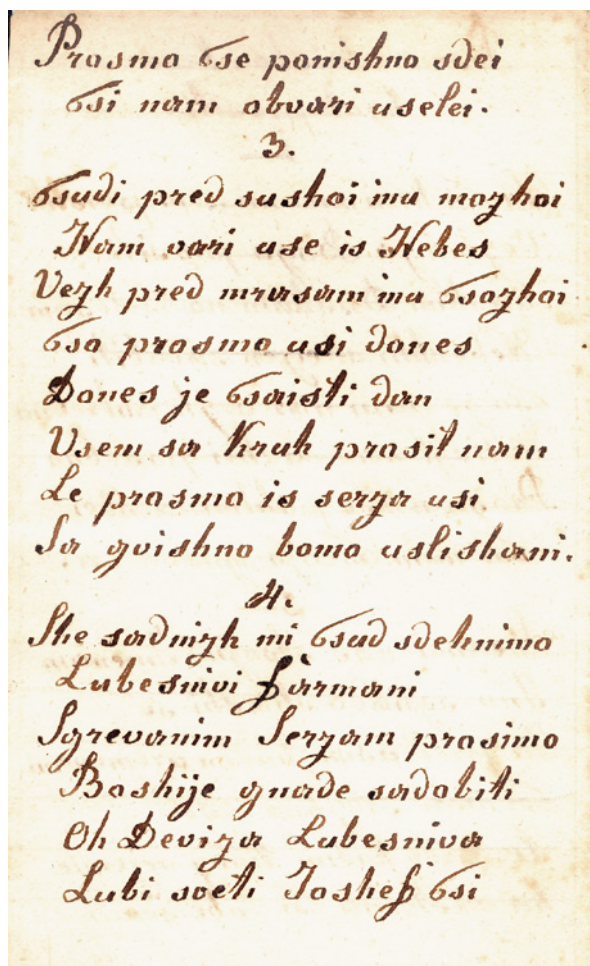 Prosmo Bse ponishno sdei
Bsi nam obvari uselei.
3.
Bsudi pred sushoi inu mozhoi
Nam vari use is Nebes
Vezh pred mrasam inu Bsozhoi
Bso prosmo usi dones
Dones je Bsaisti dan
Usem sa Kruh prosit nam
Le prosmo is serza usi
Sa gvishno bomo uslishani.
4.
She sadnizh mi Bsud sdehnimo
Lubesnivi Fàrmani
Sgrevanim Serzam prosimo
Boshije gnade sadobiti
Oh Deviza Lubesniva
Lubi sveti Joshef Bsi